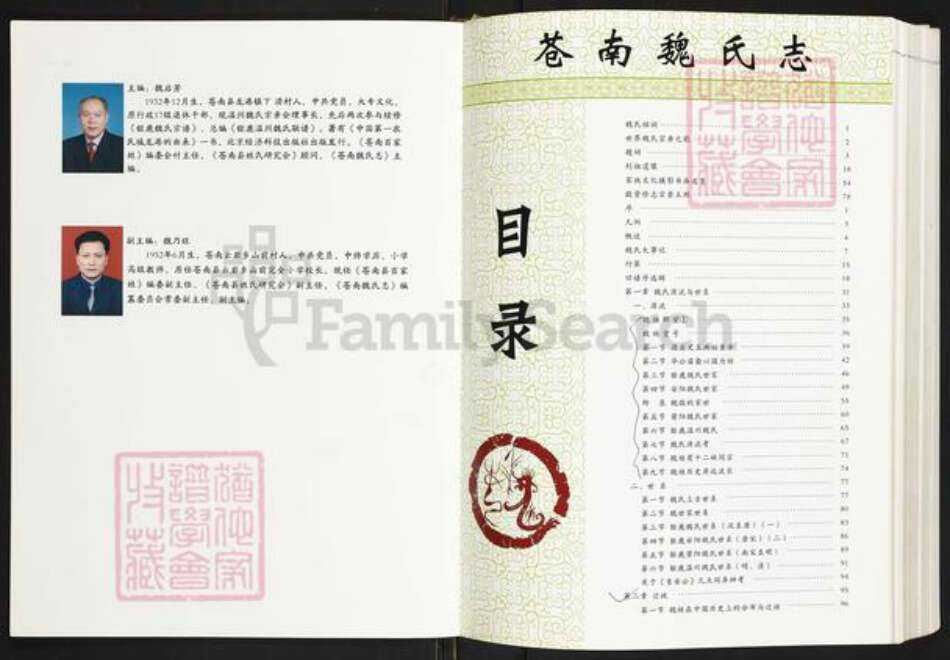 主编：魏启芳
1932年12月生，苍南县龙港镇下涝村人，中共党员，大专文化，
原行政17级退休干部，现温州魏氏宗亲会理事长，先后两次参与续修
《钜鹿魏氏宗谱》，总编《钜鹿温州魏氏联谱》，著有《中国第一农
民城龙港的由来》一书，北京经济科技出版社出版发行。《苍南百家
姓》编委会付主任，《苍南县姓氏研究会》顾问，《苍南魏氏志》主
编。
副主编：魏乃旺
1952年6月生，苍南云岩乡山前村人，中共党员，中师学历，小学
高级教师，原任苍南县云岩乡山前完全小学校长，现任《苍南县百家
姓》编委副主任，《苍南县姓氏研究会》副主任，《苍南魏氏志》编
纂委员会常委副主任、副主编。
FamilySearch
苍南魏氏志
目录
魏氏祖训 1
世界魏氏宗亲之歌 2
题词 3
列祖遗像 18
家族文化摄影书画 54
78
序 1
凡例 3
概述 4
魏氏大事记 7
行第 15
18
第一章 魏氏源流与世系 31
一、源流 33
35
36
39
第二节 毕公 42
第三节 钜鹿魏氏世家 46
第四节 安阳魏氏世家 49
55
第五节 莆阳魏氏世家 60
第六节 钜鹿温州魏氏 65
第七节 魏氏源流考 67
第八节 魏姓有十二姓同宗 71
第九节 魏姓历史源远流长 74
二、世系 77
第一节 魏氏上古世系 77
第二节 魏世家世系 80
第三节 钜鹿魏氏世系（汉至唐）（一） 83
第四节 钜鹿安阳魏氏世系（唐宋）（二） 86
第五节 钜鹿莆阳魏氏世系（南宋至明） 89
第六节 钜鹿温州魏氏世系（明、清） 91
94
第二章 迁徙 95
第一节 魏姓在中国历史上的分布与迁徙 96